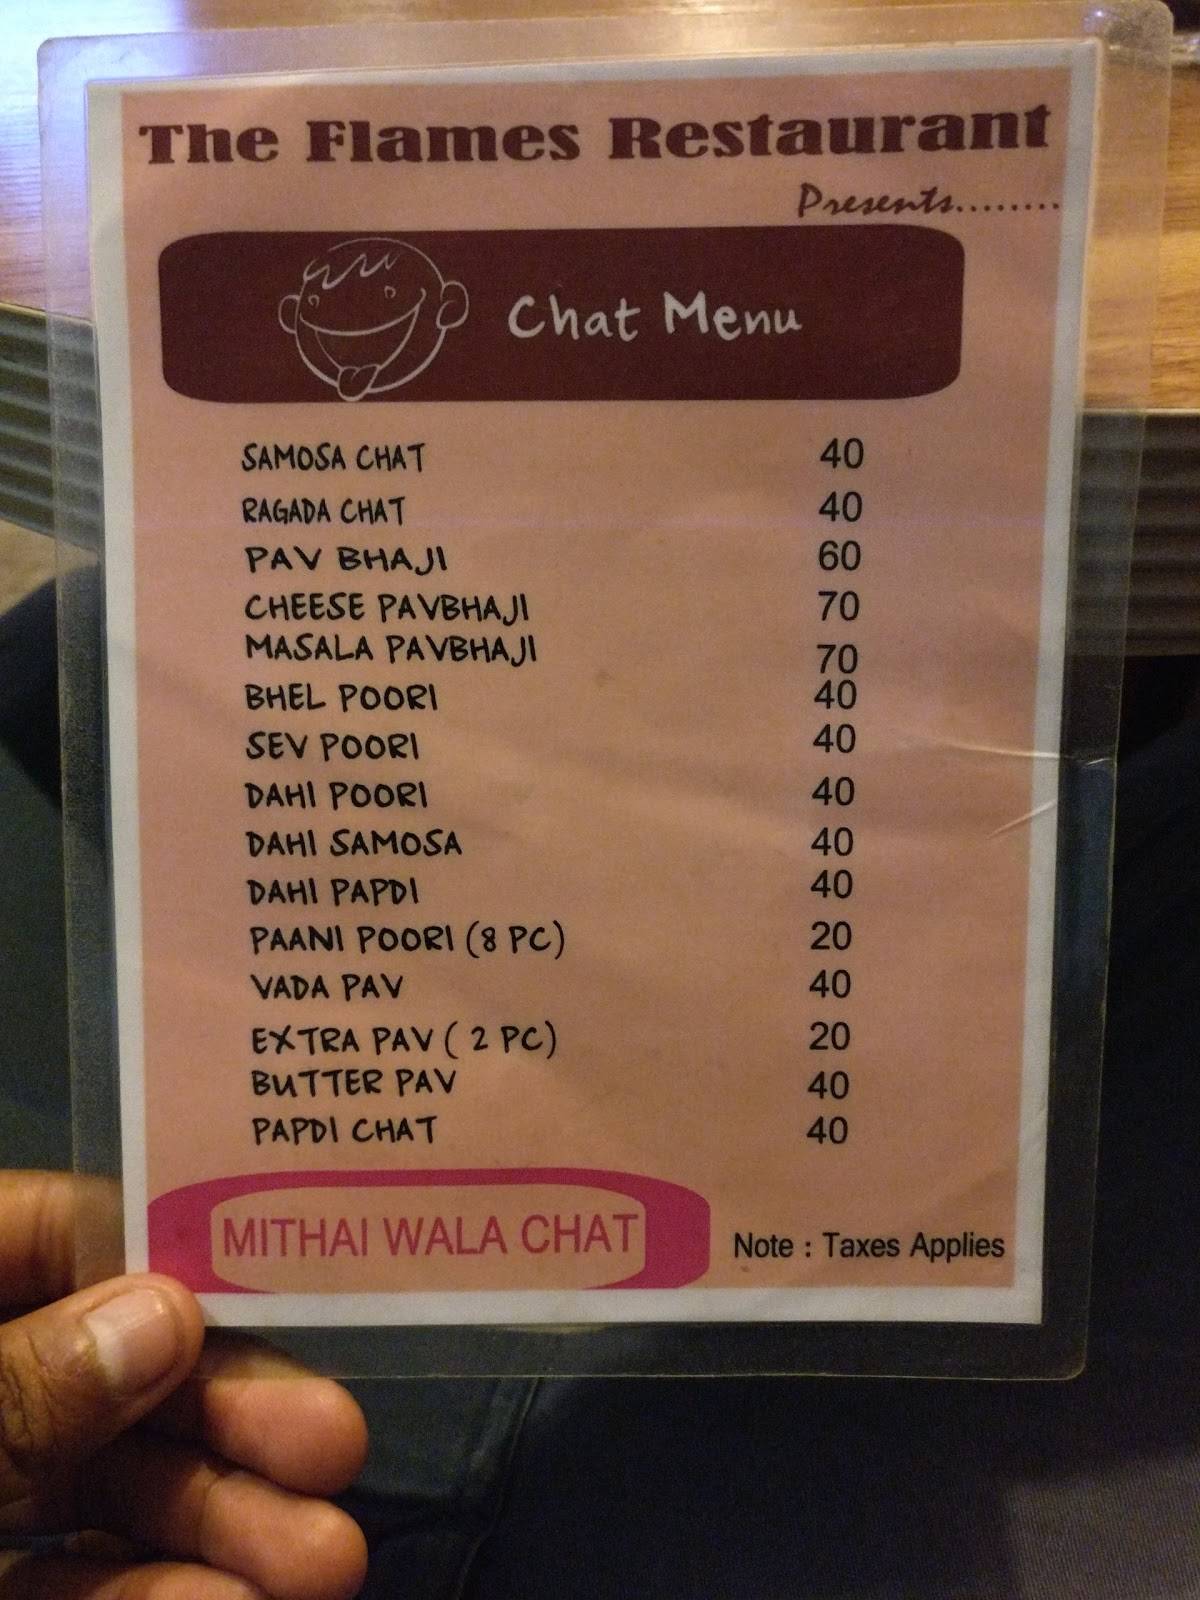 The Flames Restaurant
Presents........
Chat Menu
SAMOSA CHAT 40
RAGADA CHAT 40
PAV BHAJI 60
CHEESE PAVBHAJI 70
MASALA PAVBHAJI 70
BHEL POORI 40
SEV POORI 40
DAHI POORI 40
DAHI SAMOSA 40
DAHI PAPDI 40
PAANI POORI (8 PC) 20
VADA PAV 40
EXTRA PAV ( 2 PC) 20
BUTTER PAV 40
PAPDI CHAT 40
MITHAI WALA CHAT
Note : Taxes Applies